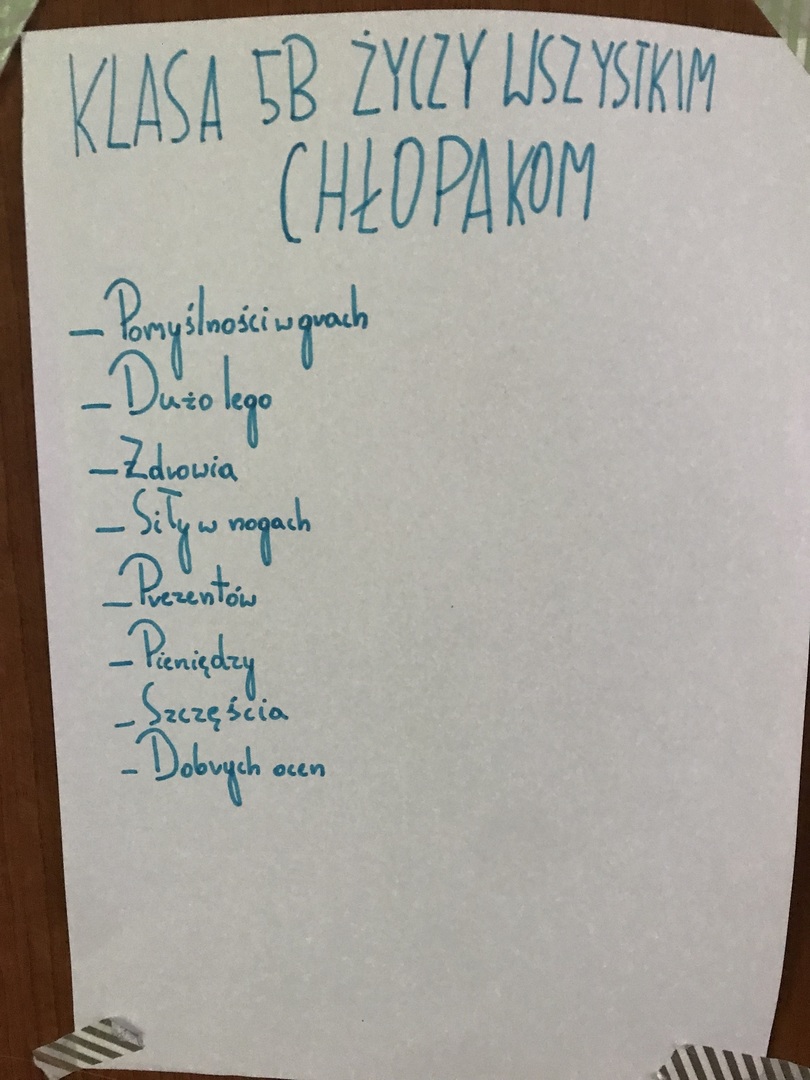 KLASA 5B ŻYCZY WSZYSTKIM
CHŁOPAKOM
– Pomyślności w grach
– Dużo lego
– Zdrowia
– Siły w nogach
– Prezentów
– Pieniędzy
– Szczęścia
– Dobrych ocen